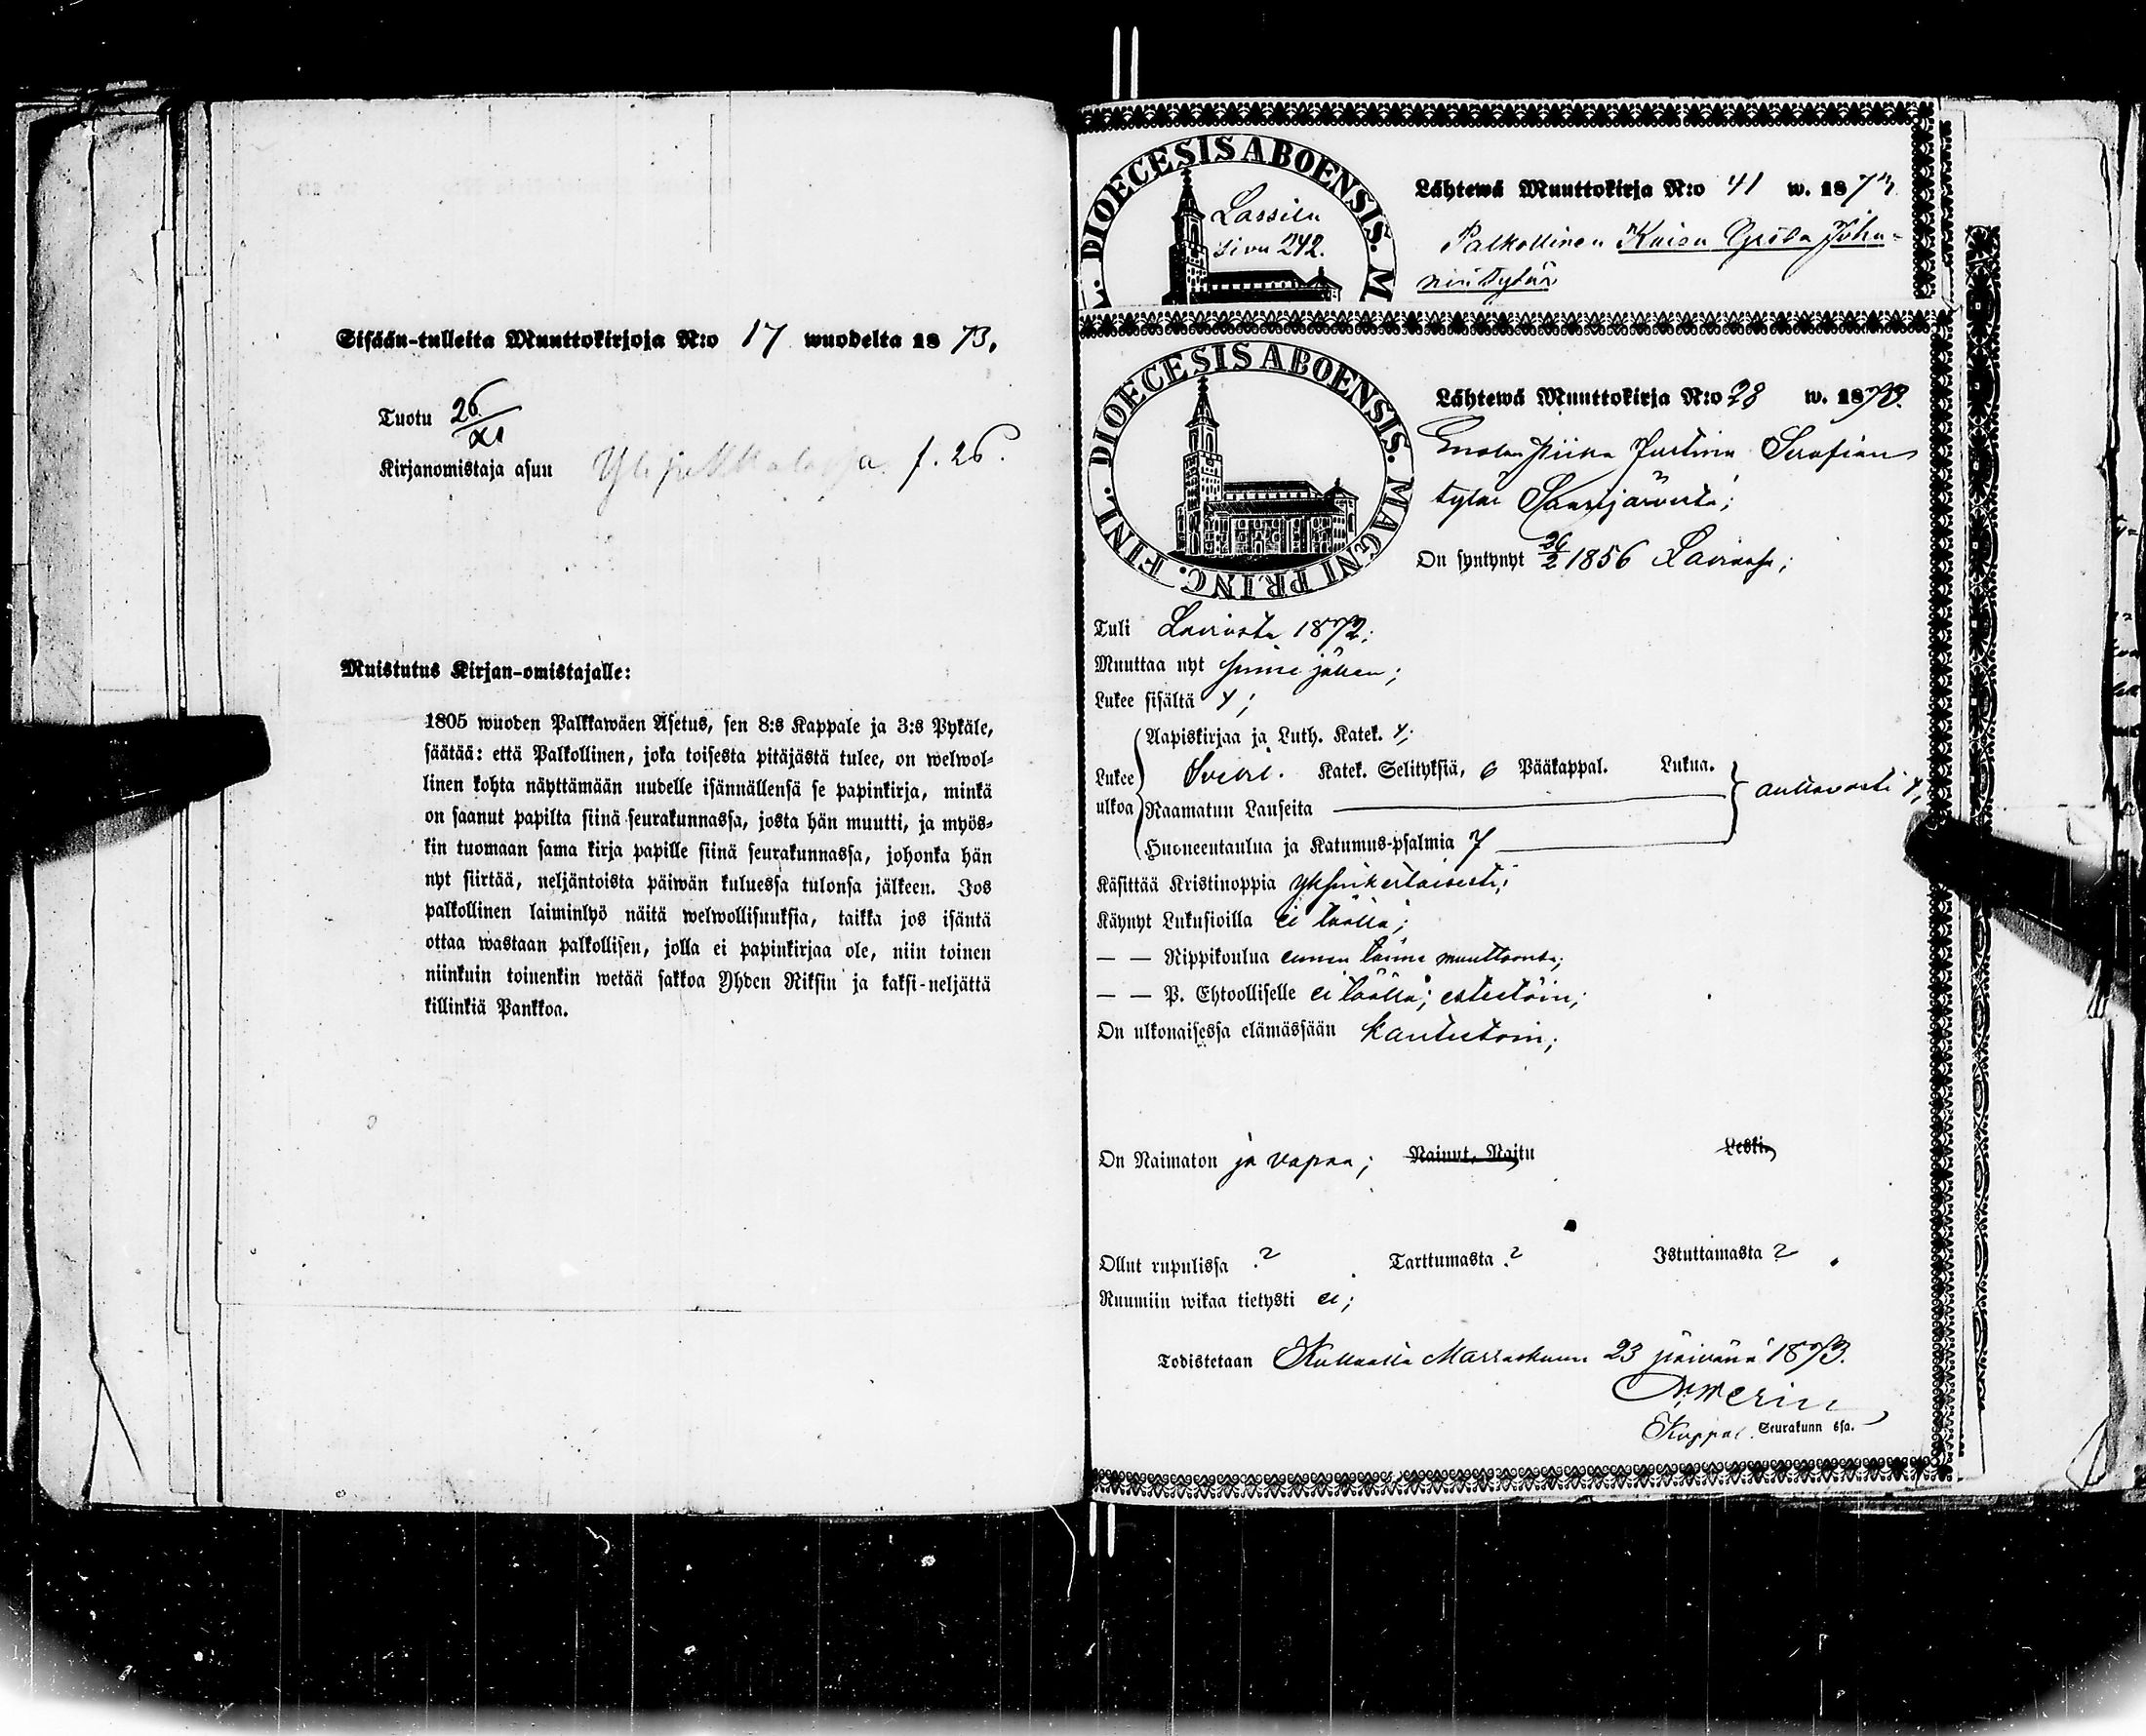 Sisään-tulleita Muuttokirjoja N:o 17 wuodelta 1873.
Tuotu 26/XI
Kirjanomistaja asuu f. 26.
Muistutus Kirjan-omistajalle:
1805 wuoden Palkkawäen Asetus, sen 8:s Kappale ja 3:s Pykäle,
säätää: että Palkollinen, joka toisesta pitäjästä tulee, on welwol-
linen kohta näyttämään uudelle isännällensä se papinkirja, minkä
on saanut papilta siinä seurakunnassa, josta hän muutti, ja myös-
kin tuomaan sama kirja papille siinä seurakunnassa, johonka hän
nyt siirtää, neljäntoista päiwän kuluessa tulonsa jälkeen. Jos
palkollinen laiminlyö näitä welwollisuuksia, taikka jos isäntä
ottaa wastaan palkollisen, jolla ei papinkirjaa ole, niin toinen
niinkuin toinenkin wetää sakkoa Yhden Riksin ja kaksi-neljättä
killinkiä Pankkoa.
DIOECESIS ABOENSIS. M
Lassila
sivu 242.
Lähtewä Muuttokirja N:o 41 w. 1873
Palkollinen Kaisa Johan-
nintytär
DIOECESIS ABOENSIS. MAGNI PRINC. FINL.
Lähtewä Muuttokirja N:o 28 w. 1873.
Piika Justina Serafian
tytär Saarijärveltä;
On syntynyt 26/2 1856 Laviassa;
Tuli Laviasta 1872;
Muuttaa nyt jällen;
Lukee sisältä y;
Aapiskirjaa ja Luth. Katek. y;
Lukee
ulkoa
Svebel. Katek. Selityksiä, 6 Pääkappal. Lukua.
Raamatun Lauseita
auttavasti y;
Huoneentaulua ja Katumus-psalmia 7
Käsittää Kristinoppia yksinkertaisesti;
Käynyt Lukusioilla ei täällä;
— — Rippikoulua ennen tänne muuttoansa;
— — P. Ehtoolliselle ei täällä; estetöin;
On ulkonaisessa elämässään kantetoin;
On Naimaton ja vapaa; Nainut, Naitu Leski
Ollut rupulissa ? Tarttumasta ? Istuttamasta ?
Ruumiin wikaa tietysti ei;
Todistetaan Kullaalla Marraskuun 23 päivänä 1873.
Kappal. Seurakunnassa.